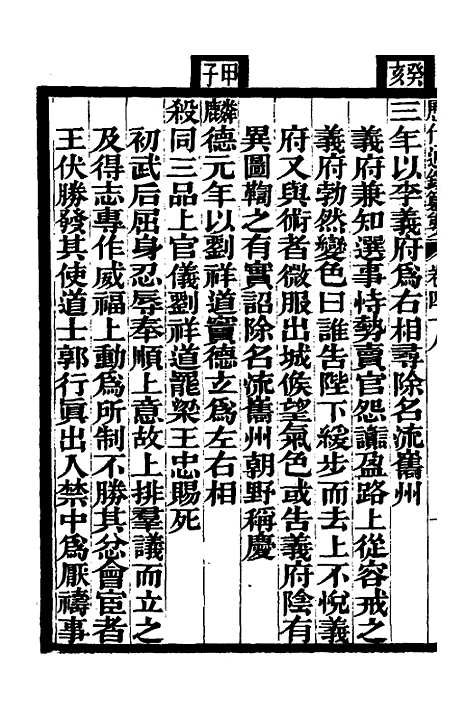 癸亥
甲子
歷代通鑑輯覽 卷四十八
三年以李義府為右相尋除名流巂州
義府兼知選事恃勢賣官怨讟盈路上從容戒之
義府勃然變色曰誰告陛下緩步而去上不悅義
府又與術者微服出城候望氣色或告義府陰有
異圖鞫之有實詔除名流巂州朝野稱慶
麟德元年以劉祥道竇德玄為左右相
殺同三品上官儀劉祥道罷梁王忠賜死
初武后屈身忍辱奉順上意故上排羣議而立之
及得志專作威福上動為所制不勝其忿會宦者
王伏勝發其使道士郭行眞出入禁中為厭禱事